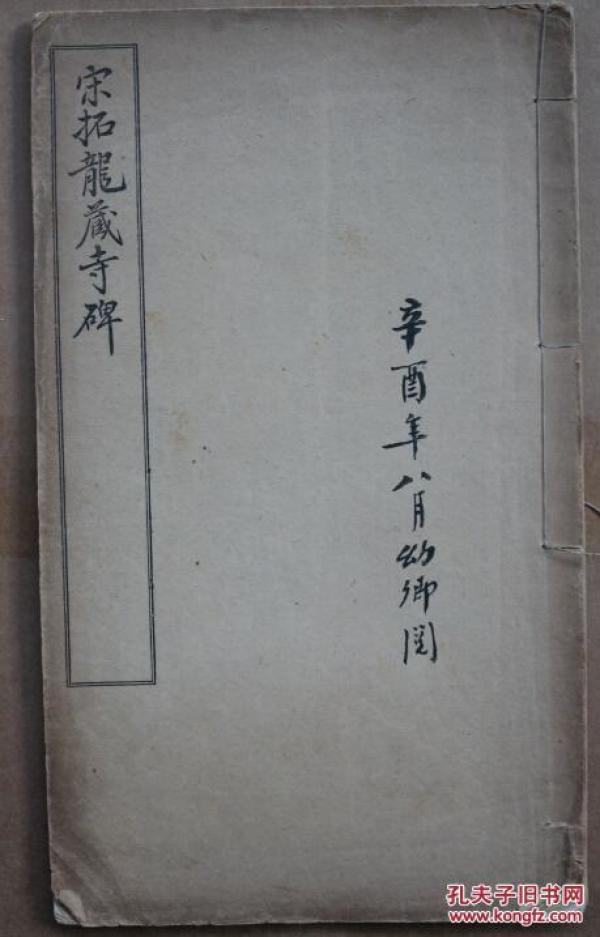 宋拓龍藏寺碑
辛酉年八月幼卿閱
孔夫子旧书网
www.kongfz.com